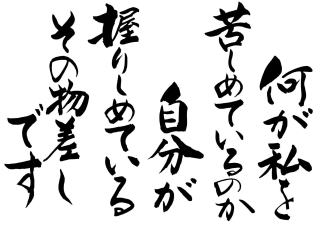 何が私を
苦しめているのか
自分が
握りしめている
その物差し
です